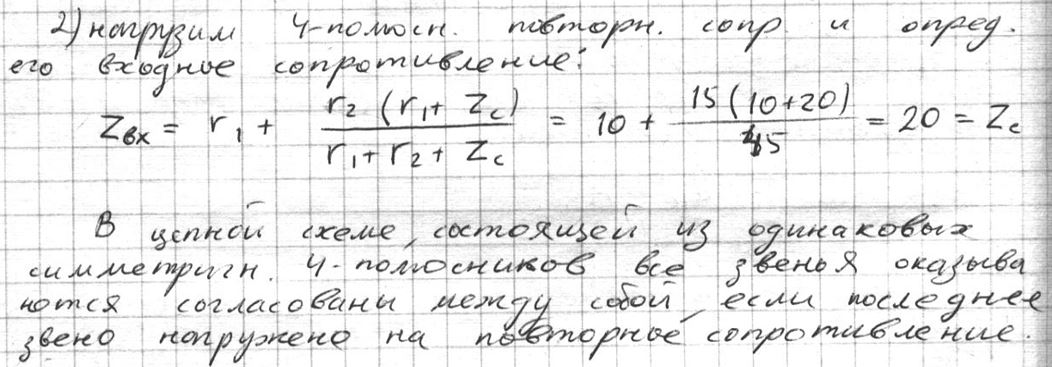 2) нагрузим 4-полюсн. повторн. сопр. и опред.
его входное сопротивление:
Zвх = r₁ + r₂ (r₁ + Zc) / r₁ + r₂ + Zc = 10 + 15 (10+20) / 45 = 20 = Zc
В цепной схеме, состоящей из одинаковых
симметричн. 4-полюсников все звенья оказыва
ются согласованы между собой, если последнее
звено нагружено на повторное сопротивление.